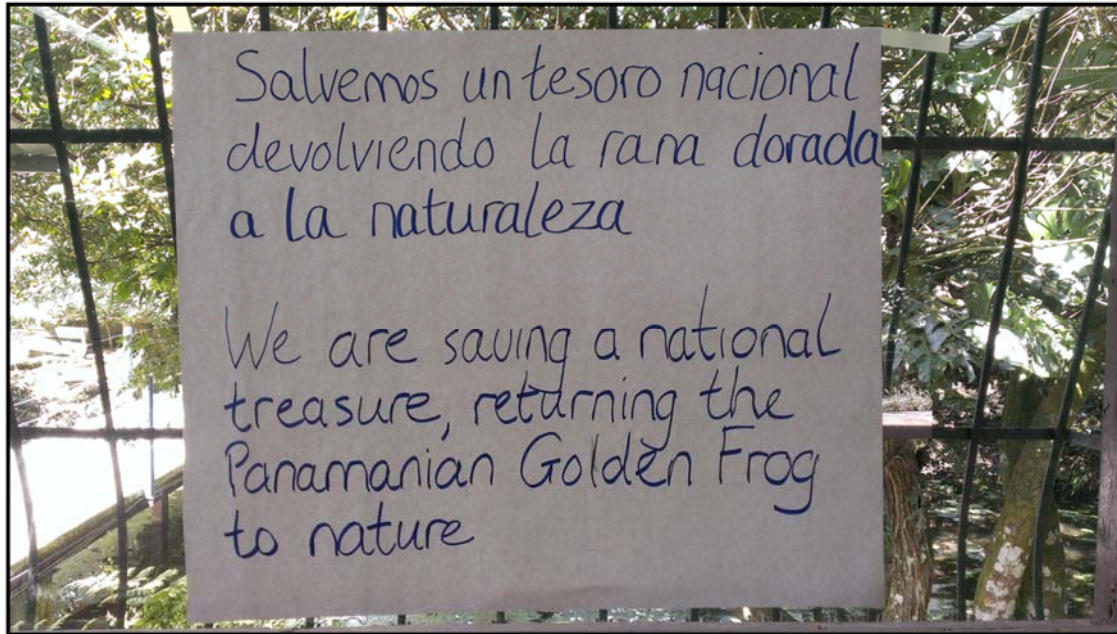 Salvemos un tesoro nacional
devolviendo la rana dorada
a la naturaleza
We are saving a national
treasure, returning the
Panamanian Golden Frog
to nature